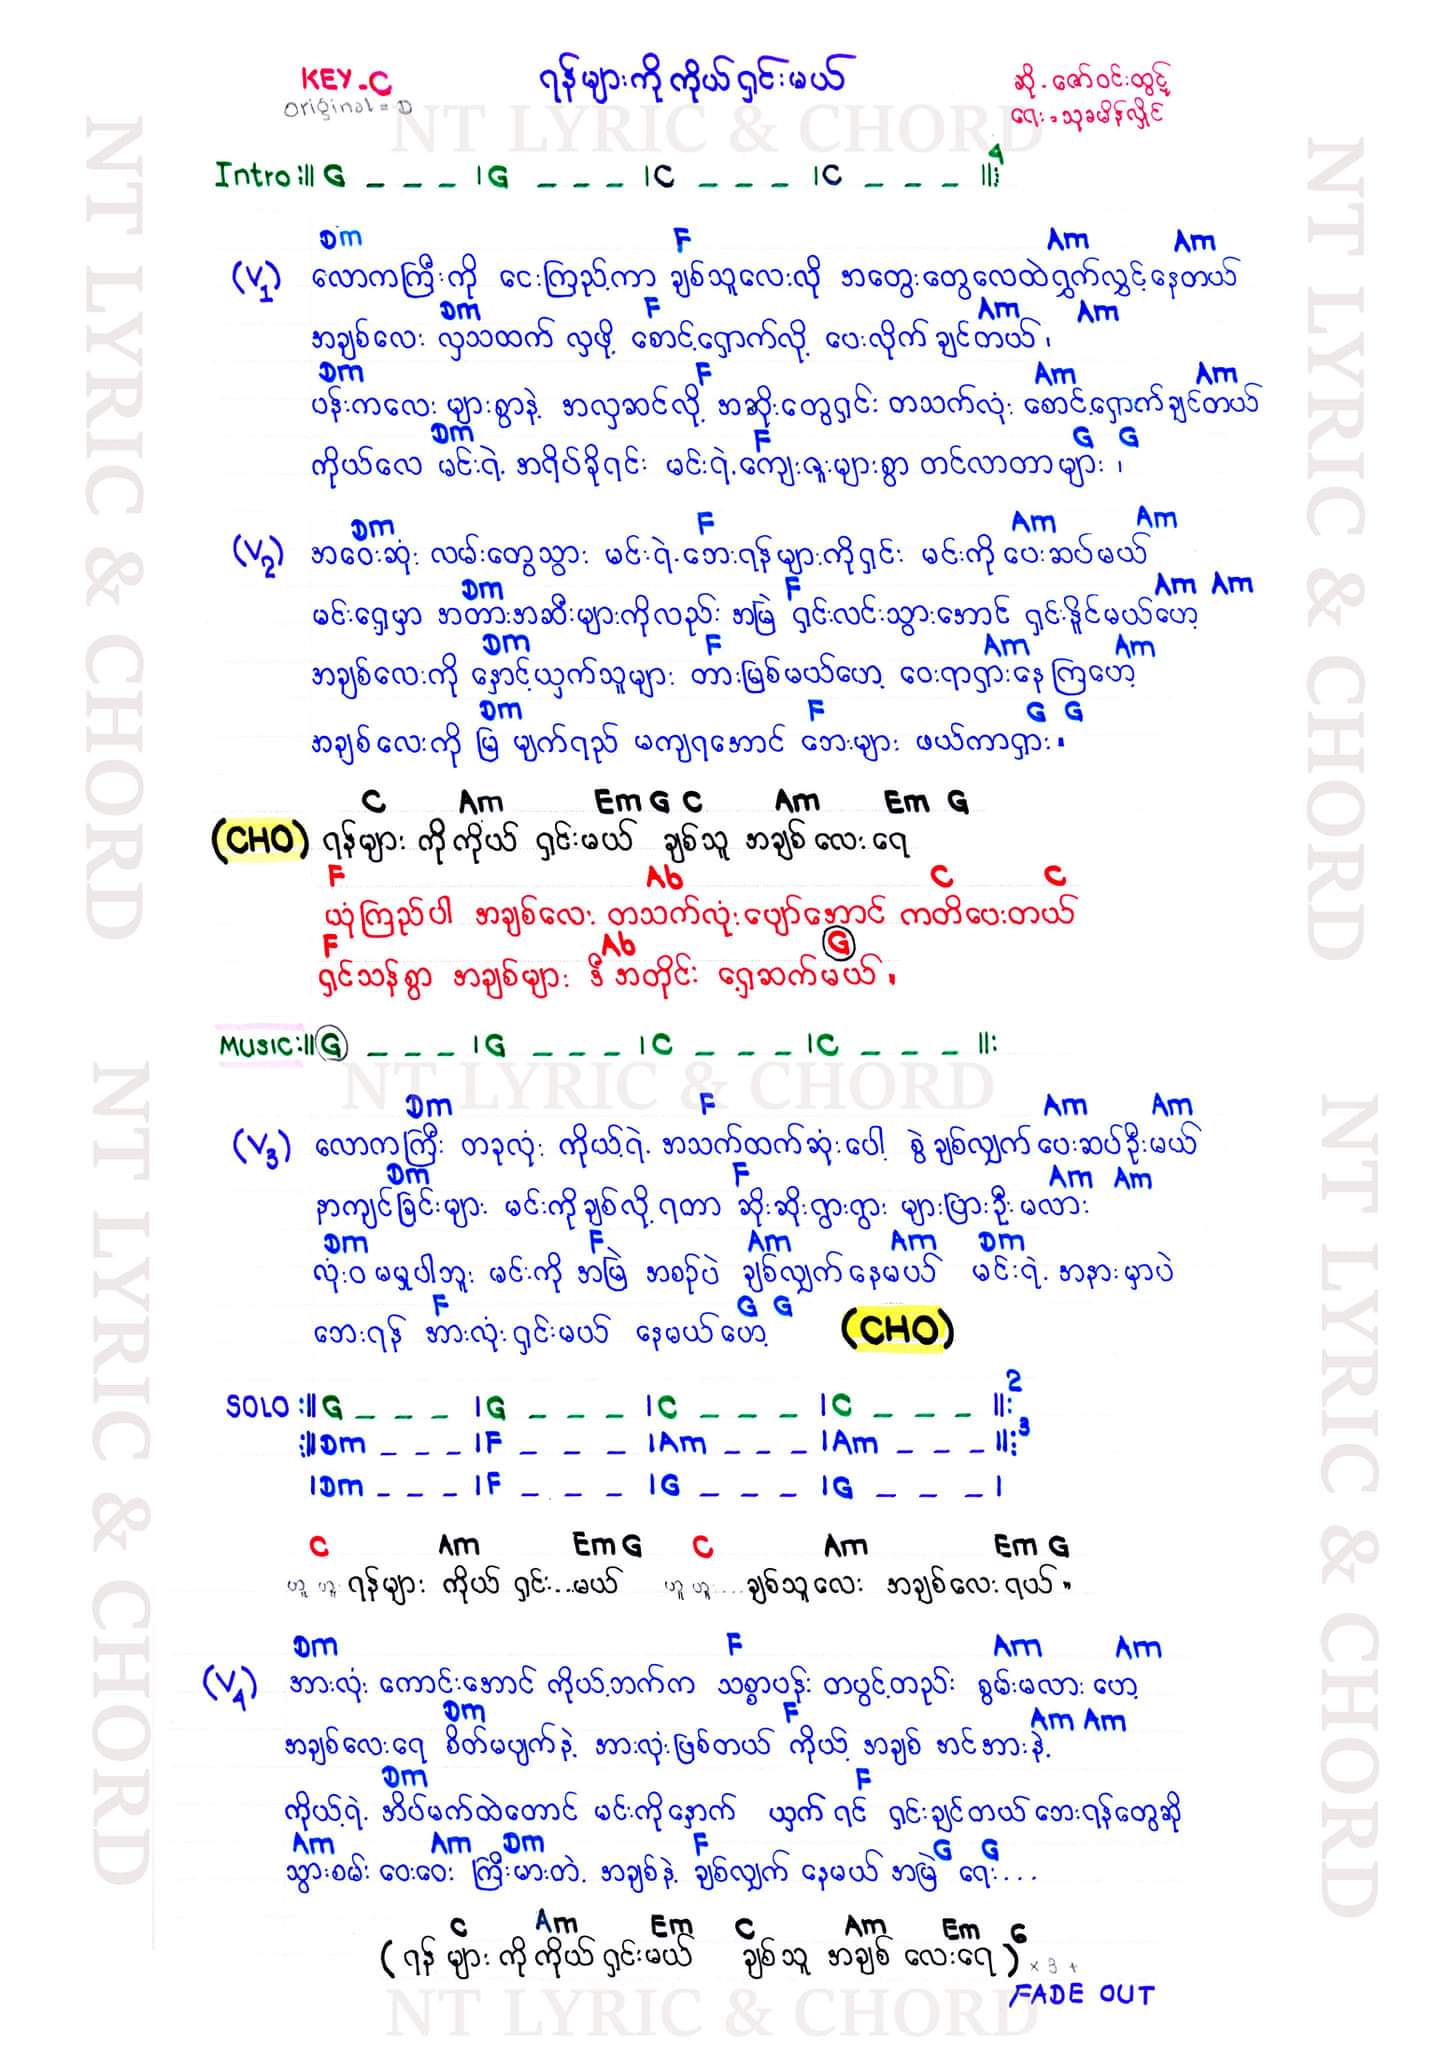 KEY-C
original = D
ရန်များကိုကိုယ်ရှင်းမယ်
ဆို - ဇော်ဝင်းထွဋ်
ရေး - သုခမိန်လှိုင်
NT LYRIC & CHORD
Intro :|| G _ _ _ | G _ _ _ | C _ _ _ | C _ _ _ ||: 4
Dm F Am Am
(V1) လောကကြီးကို ငေးကြည့်ကာ ချစ်သူလေးလို အတွေးတွေလေထဲရွှက်လွှင့်နေတယ်
Dm F Am Am
အချစ်လေး လှသထက် လှဖို့ စောင့်ရှောက်လို့ ပေးလိုက်ချင်တယ်၊
Dm F Am Am
ပန်းကလေး များစွာနဲ့ အလှဆင်လို့ အဆိုးတွေရှင်း တသက်လုံး စောင့်ရှောက်ချင်တယ်
Dm F G G
ကိုယ်လေ မင်းရဲ့ အရိပ်ခိုရင်း မင်းရဲ့ကျေးဇူးများစွာ တင်လာတာများ ၊
Dm F Am Am
(V2) အဝေးဆုံး လမ်းတွေသွား မင်းရဲ့ဘေးရန်များကိုရှင်း မင်းကို ပေးဆပ်မယ်
Dm F Am Am
မင်းရှေ့မှာ အတားအဆီးများကိုလည်း အမြဲ ရှင်းလင်းသွားအောင် ရှင်းနိူင်မယ်ဟေ့
Dm F Am Am
အချစ်လေးကို နှောင့်ယှက်သူများ တားမြစ်မယ်ဟေ့ ဝေးရာရှားနေကြဟေ့
Dm F G G
အချစ်လေးကို မြဲ မျက်ရည် မကျရအောင် ဘေးများ ဖယ်ကာရှား။
C Am Em G C Am Em G
(CHO) ရန်များ ကိုကိုယ် ရှင်းမယ် ချစ်သူ အချစ်လေးရေ
F Ab C C
ယုံကြည်ပါ အချစ်လေး တသက်လုံးပျော်အောင် ကတိပေးတယ်
F Ab G
ရှင်သန်စွာ အချစ်များ ဒီအတိုင်း ရှေ့ဆက်မယ်။
MUSIC :|| G _ _ _ | G _ _ _ | C _ _ _ | C _ _ _ ||:
NT LYRIC & CHORD
Dm F Am Am
(V3) လောကကြီး တခုလုံး ကိုယ့်ရဲ့ အသက်ထက်ဆုံးပေါ့ စွဲချစ်လျှက်ပေးဆပ်ဦးမယ်
Dm F Am Am
နာကျင်ခြင်းများ မင်းကိုချစ်လို့ရတာ ဆိုးဆိုးရွားရွား များပြားဦးမလား
Dm F Am Am Dm
လုံးဝ မမှုပါဘူး မင်းကို အမြဲ အစဉ်ပဲ ချစ်လျှက်နေမယ် မင်းရဲ့ အနားမှာပဲ
F G G
ဘေးရန် အားလုံးရှင်းမယ် နေမယ်ဟေ့ (CHO)
SOLO :|| G _ _ _ | G _ _ _ | C _ _ _ | C _ _ _ ||: 2
:|| Dm _ _ _ | F _ _ _ | Am _ _ _ | Am _ _ _ ||: 3
| Dm _ _ _ | F _ _ _ | G _ _ _ | G _ _ _ |
C Am Em G C Am Em G
ဟူး ဟူး ရန်များ ကိုယ် ရှင်း...မယ် ဟူး ဟူး....ချစ်သူလေး အချစ်လေးရယ်။
Dm F Am Am
(V4) အားလုံး ကောင်းအောင် ကိုယ့်ဘက်က သစ္စာပန်း တပွင့်တည်း စွမ်းမလား ဟေ့
Dm F Am Am
အချစ်လေးရေ စိတ်မပျက်နဲ့ အားလုံးဖြစ်တယ် ကိုယ့် အချစ် အင်အားနဲ့
Dm F
ကိုယ့်ရဲ့ အိပ်မက်ထဲတောင် မင်းကိုနှောက် ယှက် ရင် ရှင်းချင်တယ် ဘေးရန်တွေဆို
Am Am Dm F G G
သွားစမ်း ဝေးဝေး ကြီးမားတဲ့ အချစ်နဲ့ ချစ်လျှက် နေမယ် အမြဲ ရေး...
C Am Em C Am Em
(ရန် များ ကိုကိုယ် ရှင်းမယ် ချစ်သူ အချစ် လေးရေ) 6 × 3 +
FADE OUT
NT LYRIC & CHORD
NT LYRIC & CHORD
NT LYRIC & CHORD
NT LYRIC & CHORD
NT LYRIC & CHORD